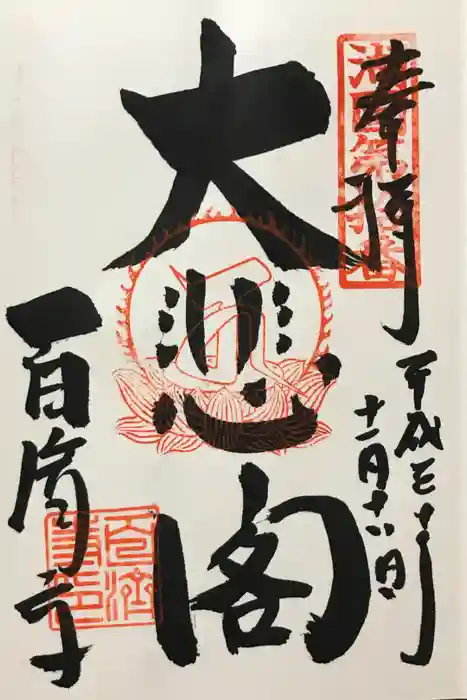 奉拝
平成三十年
十一月十八日
大悲閣
百済寺
百済
寺印